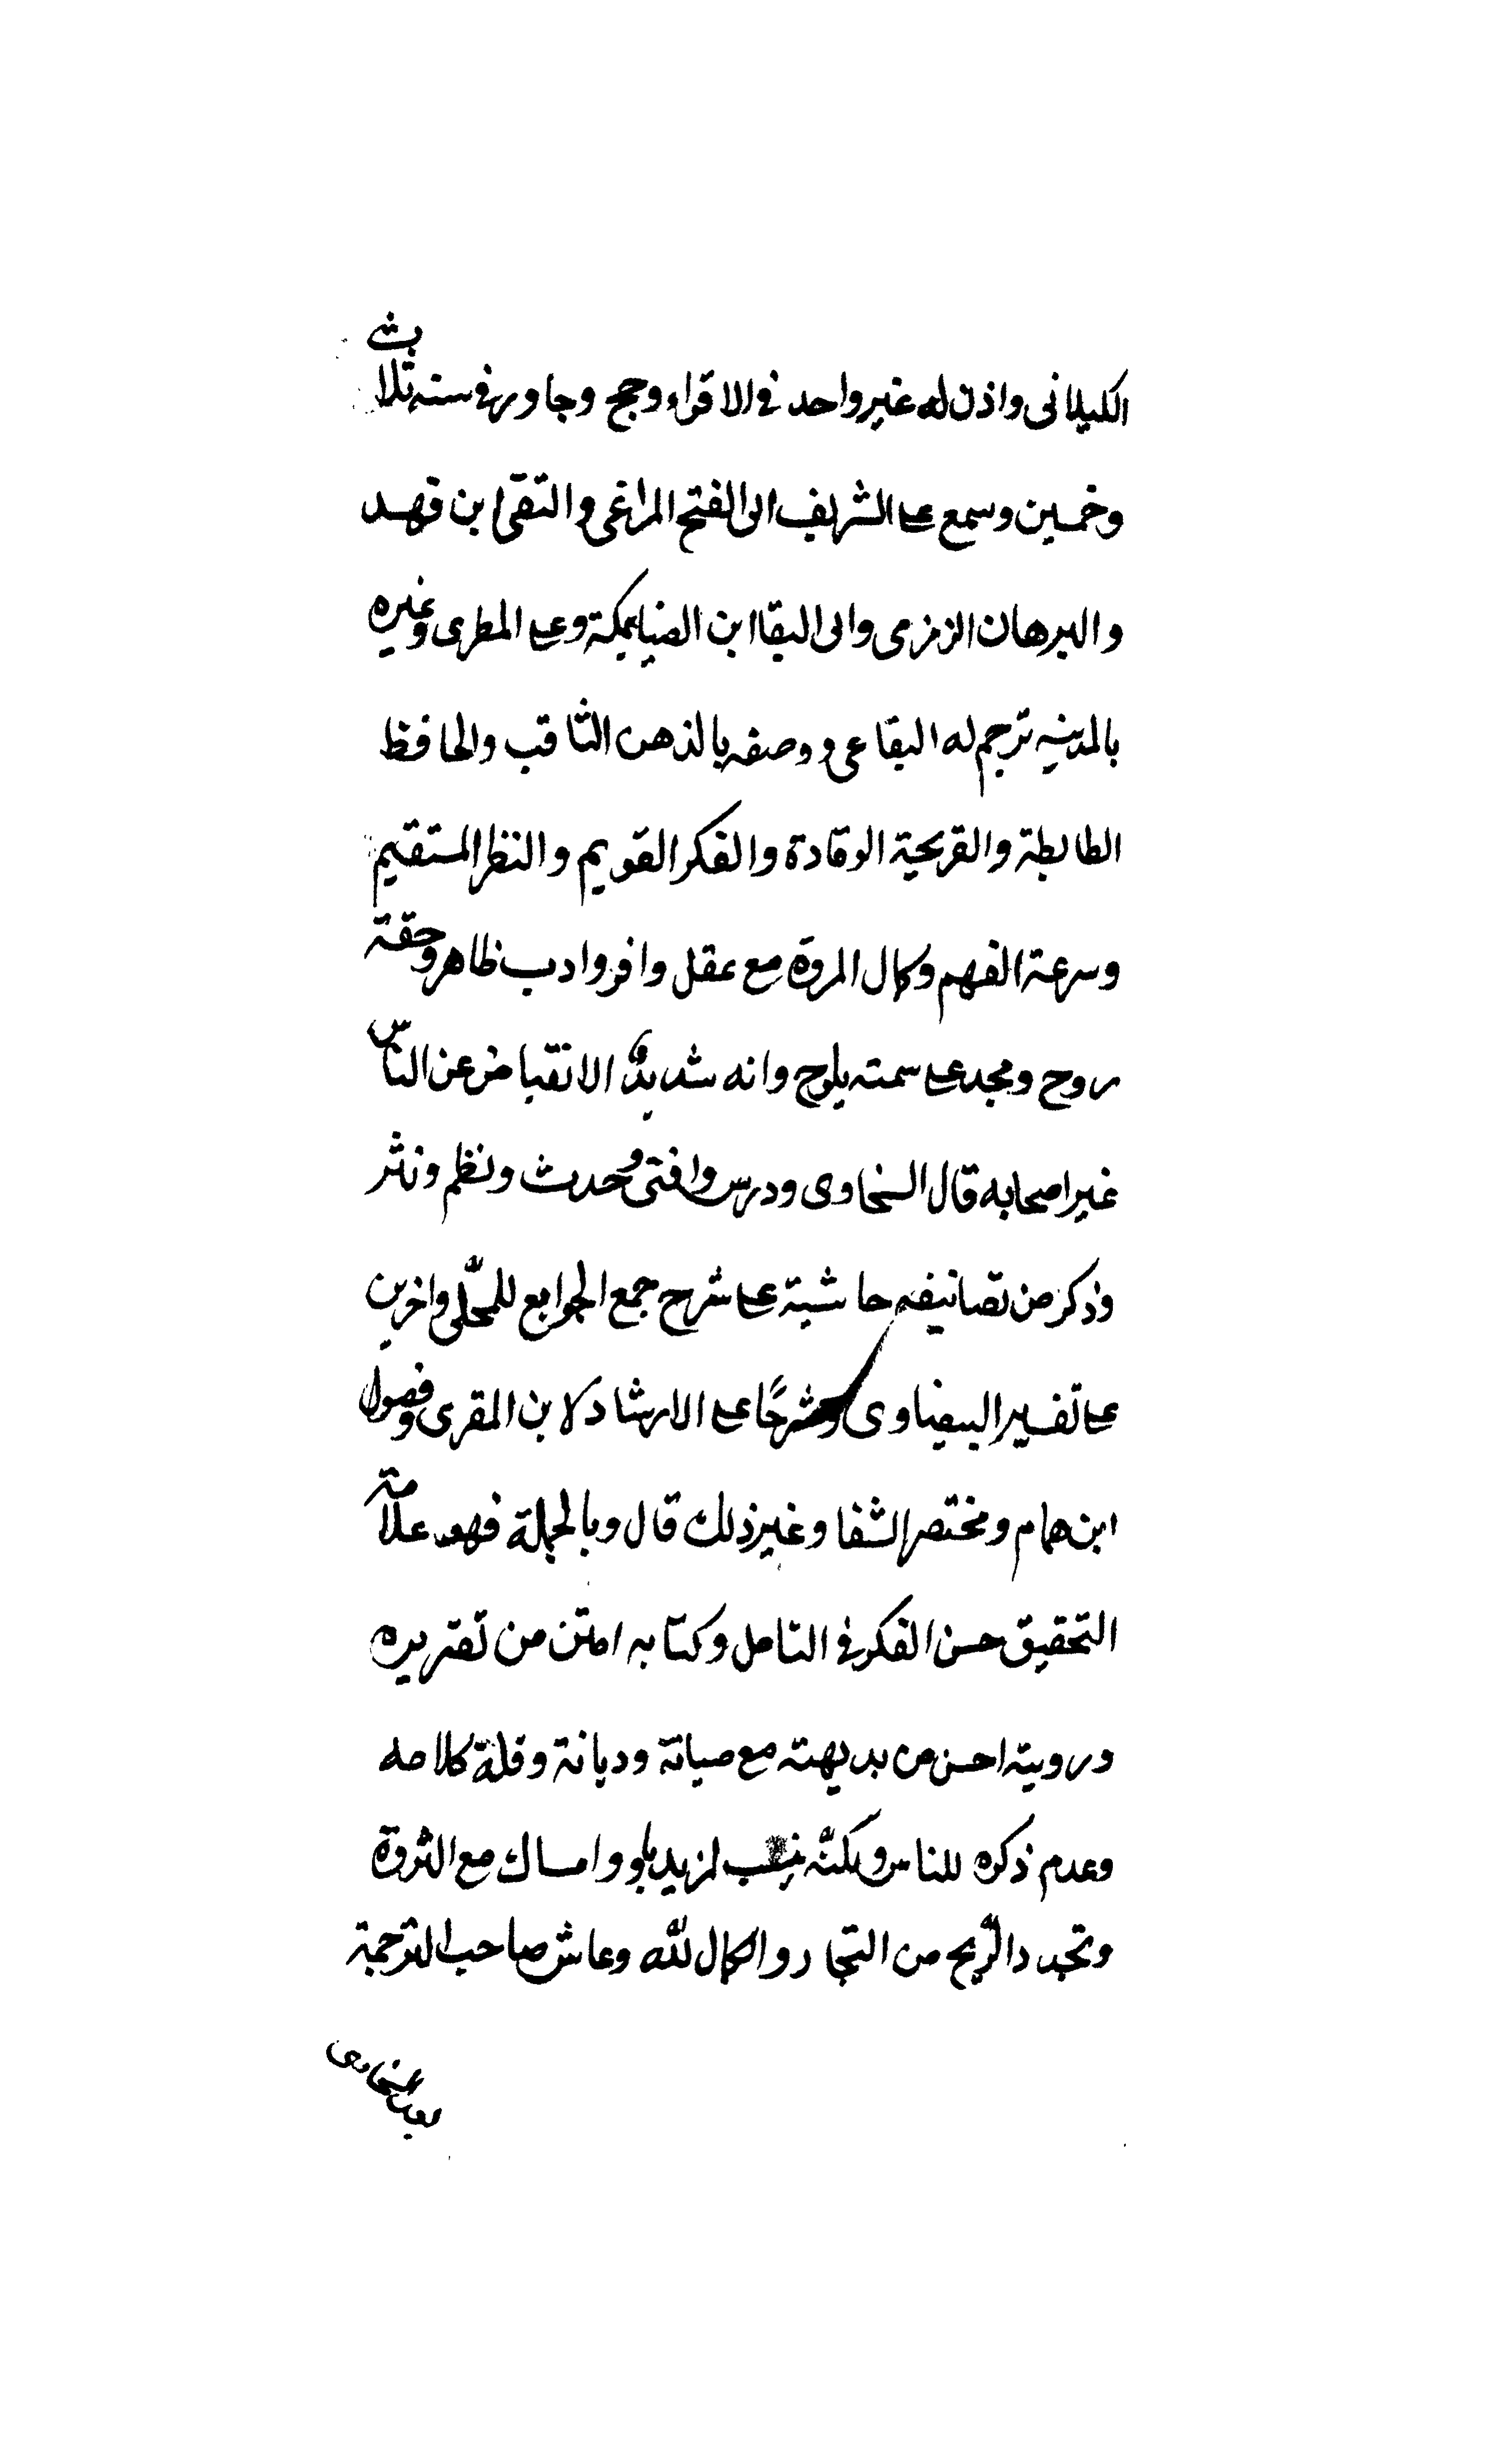 الكيلانى واذن له غير واحد فى الاقراء وحج وجاور فى سنه ثلاث
وخمسين وسمع على الشريف ابى الفتح المراغى والتقى ابن فهد
والبرهان الزمزمى وابى البقا ابن الضيا بمكة وعلى المطرى وغيره
بالمدينه ترجم له البقاعى ووصفه بالذهن الثاقب والحافظ
الطابطة والقريحة الوقادة والفكر القويم والنظر المستقيم
وسرعة الفهم وكمال المروة مع عقل وافر وادب ظاهر وخفة
روح ومجد على سمته يلوح وانه شديد الانقباض عن الناس
غير اصحابه قال السخاوى ودرس وافتى وحدث ونظم ونثر
وذكر من تصانيفه حاشية على شرح جمع الجوامع للمحلّى واخرين
على تفسير البيضاوى وشرحًا على الارشاد لابن المقرى وفصول
ابن همام ومختصر الشفا وغير ذلك قال وبالجملة فهو علامة
التحقيق حسن الفكر فى التامل وكتابه امتن من تقريره
ورويته احسن من بديهته مع صيانة وديانة وقلة كلامه
وعدم ذكره للناس ولكنّه ينسب لمزيد باو وامساك مع الثروة
وتجدد الرّبح من التجار والكمال للّه وعاش صاحب الترجمة
بعد السخاوى